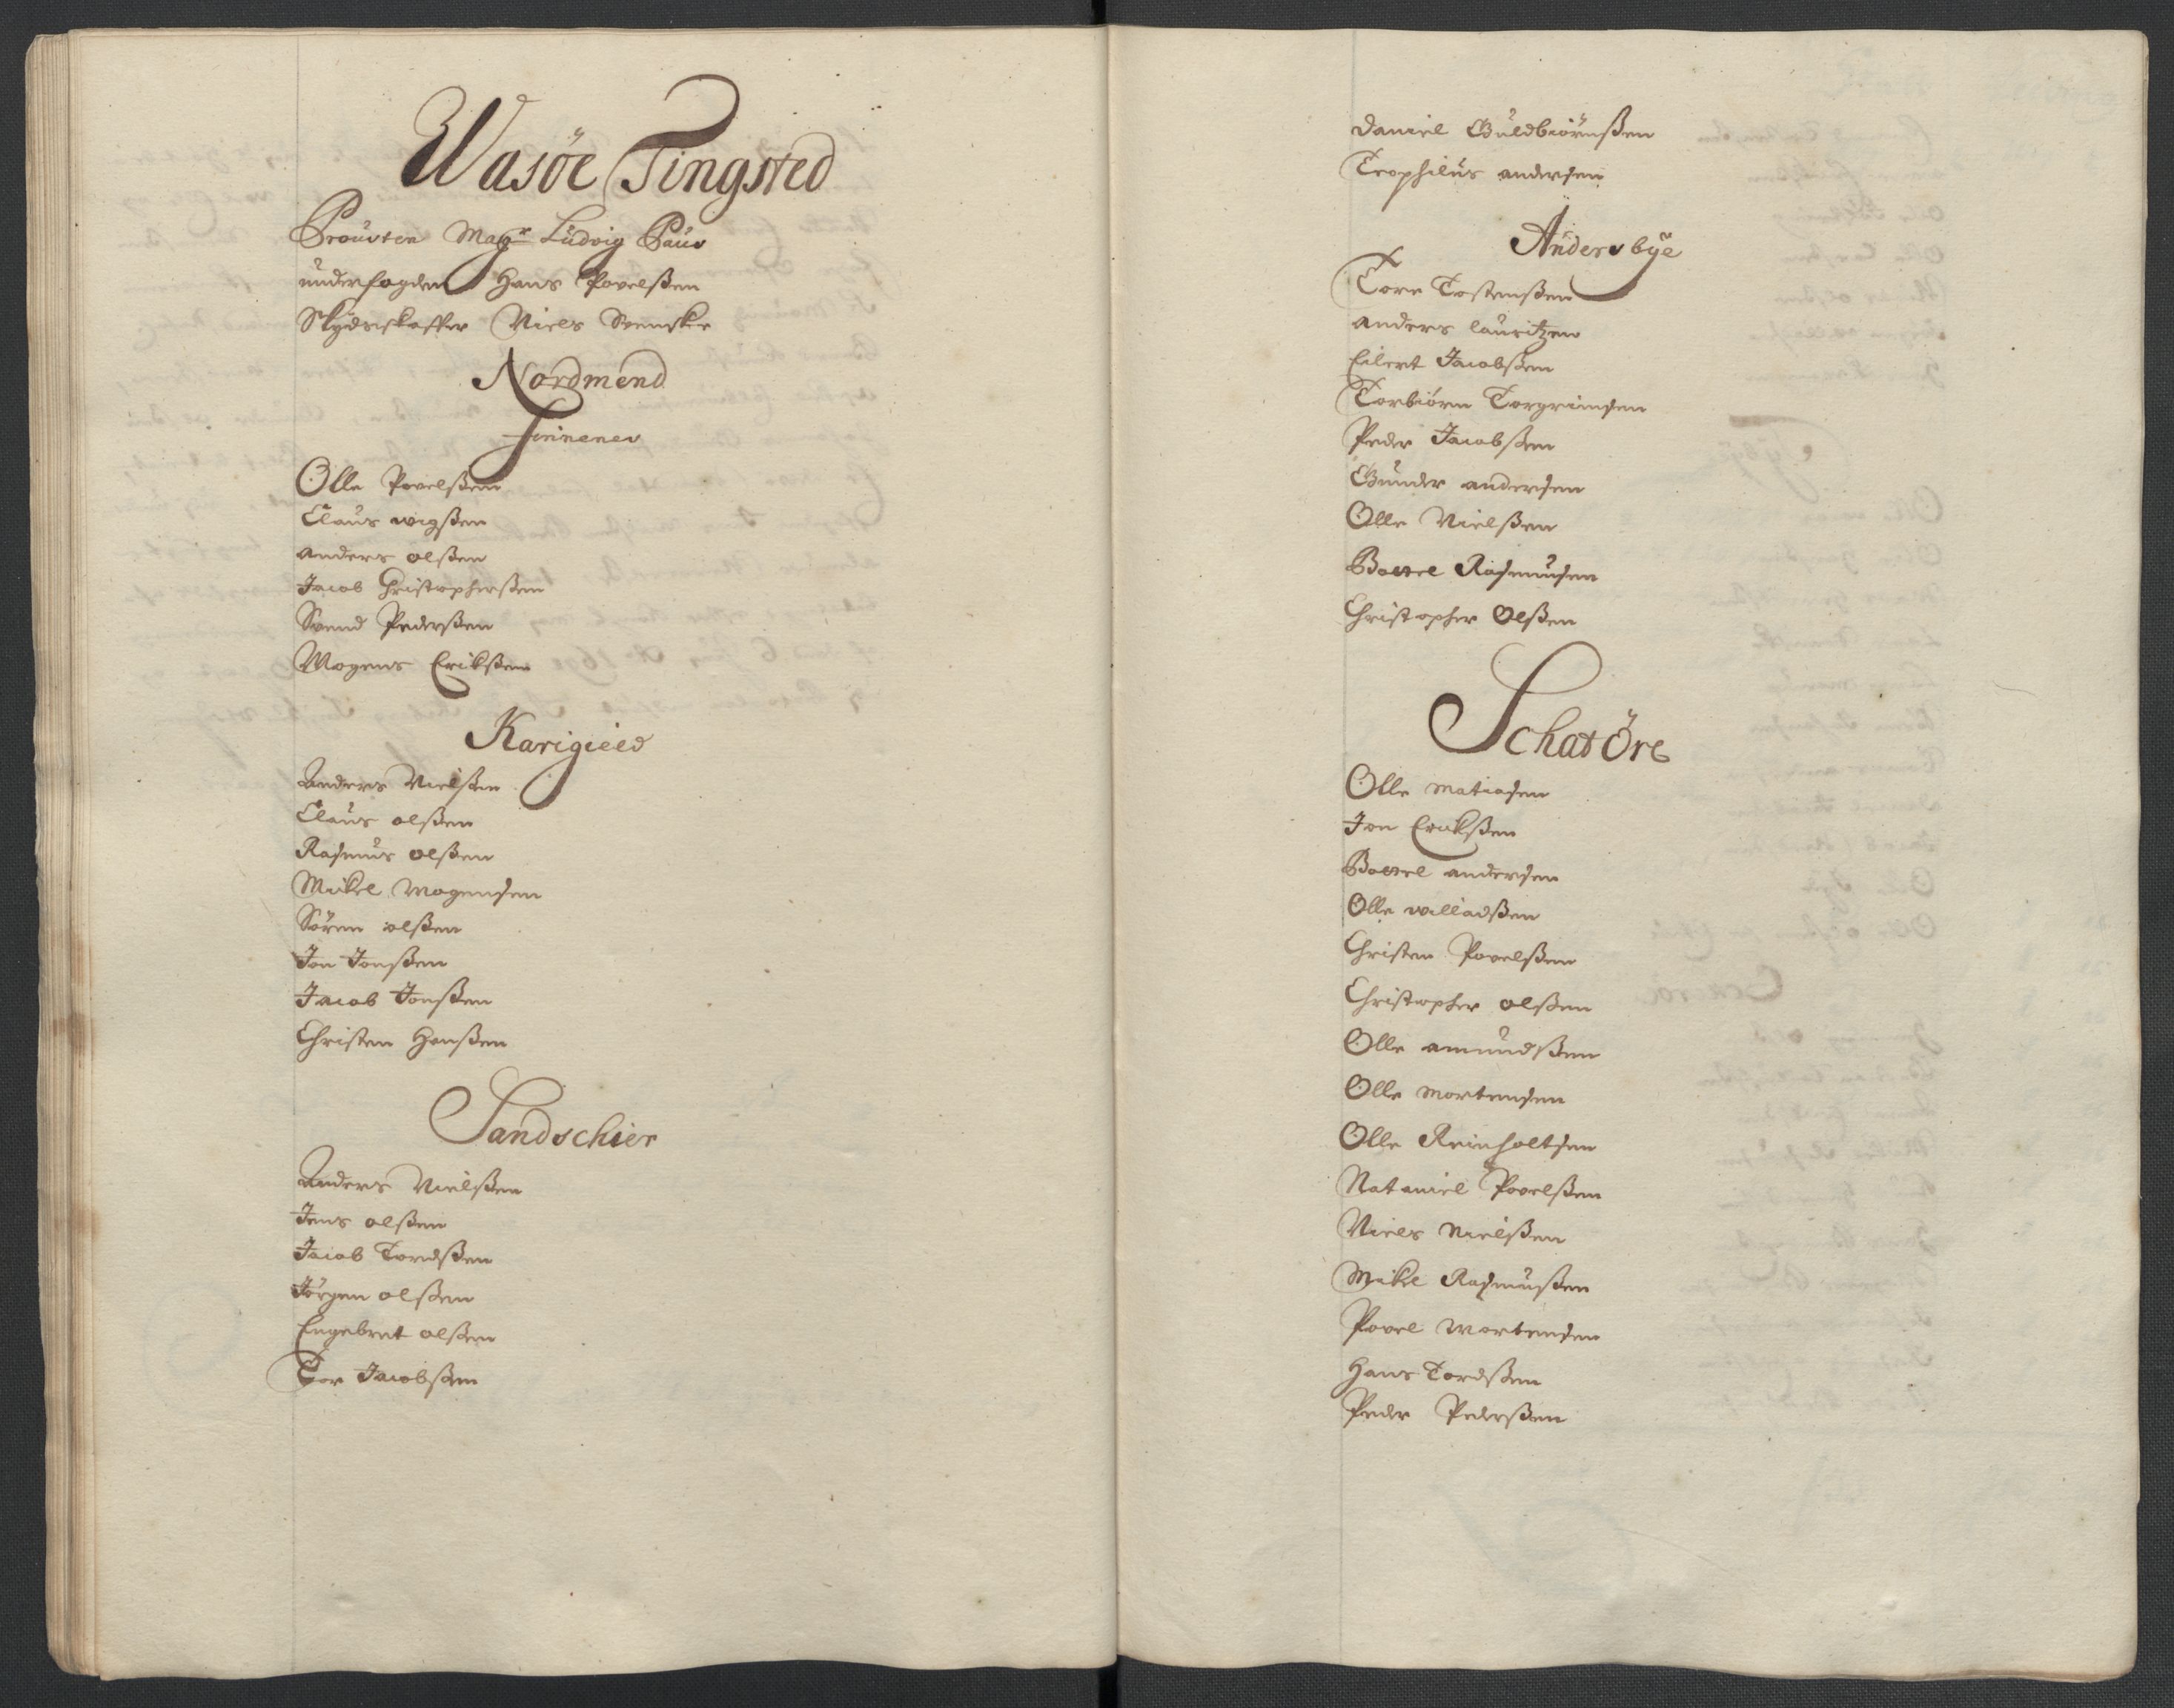 Wasöe Tingsted
Prousten Magr Ludvig Paus
underfogden Hans Povelßen
Skydsskaffer Niels Svenske
Nordmend
finnenes
Olle Povelßen
Claus wigßen
anders olßen
Jacob Christopherßen
Svend Pederßen
Mogens Erikßen
Karigield
Anders Nielßen
Claus olßen
Rasmus olßen
Mikel Mogensen
Sören olßen
Jon Jonßen
Jacob Jonßen
Christen Hanßen
Sandschier
Anders Nielßen
Jens olßen
Jacob Tordßen
Jörgen olßen
Engebret olßen
Tor Jacobßen
Daniel Guldbiörnßen
Teophilus andersen
Andersbye
Tore Tostenßen
anders lauritzen
Eilert Jacobßen
Torbiörn Torgrimsen
Peder Jacobßen
Gunder andersen
Olle Nielßen
Baerel Rasmusen
Christopher Olßen
Schatöre
Olle Matiasen
Jon Erikßen
Baerel andersen
Olle willadßen
Christen Povelßen
Christopher olßen
Olle amundßen
Olle Mortensen
Olle Reinholtsen
Nataniel Povelßen
Niels Nielßen
Mikel Rasmußen
Povel Mortensen
Hans Tordßen
Peder Pederßen